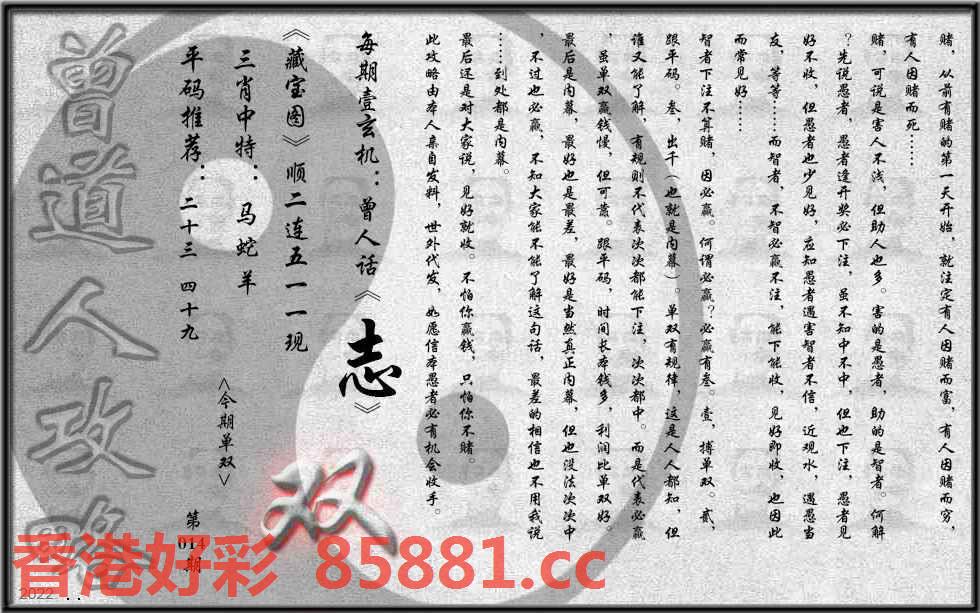 赌，从前有赌的第一天开始，就注定有人因赌而富，有人因赌而穷，
有人因赌而死……
赌，可说是害人不浅，但助人也多。害的是愚者，助的是智者。何解
？先说愚者，愚者逢开奖必下注，虽不知中不中，但也下注，愚者见
好不收，但愚者也少见好，应知愚者遇害智者不信，近观水，遇愚当
友，等等……而智者，不智必赢不注，能下能收，见好即收，也因此
而常见好……
智者下注不算赌，因必赢。何谓必赢？必赢有叁。壹，搏单双。贰，
跟平码。叁，出千（也就是内幕）。单双有规律，这是人人都知，但
谁又能了解，有规则不代表次次都能下注，次次都中。而是代表必赢
，虽单双赢钱慢，但可靠。跟平码，时间长本钱多，利润比单双好。
最后是内幕，最好也是最差，最好是当然真正内幕，但也没法次次中
，不过也必赢，不知大家能不能了解这句话，最差的相信也不用我说
……到处都是内幕。
最后还是对大家说，见好就收。不怕你赢钱，只怕你不赌。
此攻略由本人亲自发料，世外代发，如愿信本愚者必有机会收手。
每期壹玄机：曾人话《志》
《藏宝图》顺二连五一一现
三肖中特：马蛇羊
平码推荐：二十三 四十九
<今期单双>
双
第014期
曾道人攻略
香港好彩 85881.cc
2022 . .